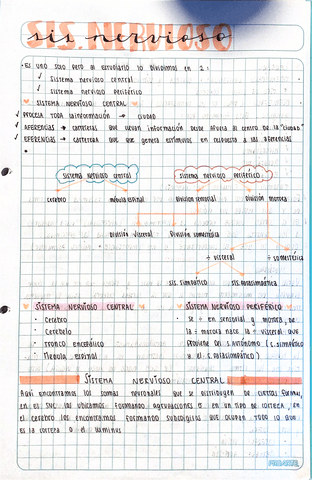 SIS. NERVIOSO
sis nervioso
• Es uno solo pero al estudiarlo lo dividimos en 2:
✓ Sistema nervioso central
✓ Sistema nervioso periférico
SISTEMA NERVIOSO CENTRAL
✓ PROCESA TODA LA INFORMACIÓN → CIUDAD
✓ AFERENCIAS → CARRETERAS QUE LLEVAN INFORMACIÓN DESDE AFUERA AL CENTRO DE LA "CIUDAD"
✓ EFERENCIAS → CARRETERA QUE GENERA ESTÍMULOS EN RESPUESTA A LAS AFERENCIAS
SISTEMA NERVIOSO CENTRAL SISTEMA NERVIOSO PERIFÉRICO
cerebro médula espinal División sensorial División motora
División visceral División somestésica
÷ visceral ÷ somestésica
sis simpático sis parasimpático
SISTEMA NERVIOSO CENTRAL SISTEMA NERVIOSO PERIFÉRICO
• Cerebro • se ÷ en sensorial y motora, de
• Cerebelo la ÷ motora nace la ÷ visceral que
• Tronco encefálico proviene del S. autónomo (S. simpático
• Médula espinal y el S. parasimpático)
SISTEMA NERVIOSO CENTRAL
Aquí encontramos los somas neuronales que se distribuyen de ciertas formas,
en el SNC los ubicamos formando agrupaciones o en un tipo de corteza, en
el cerebro los encontramos formando subcódigos que ocupan todo lo que
es la corteza o el